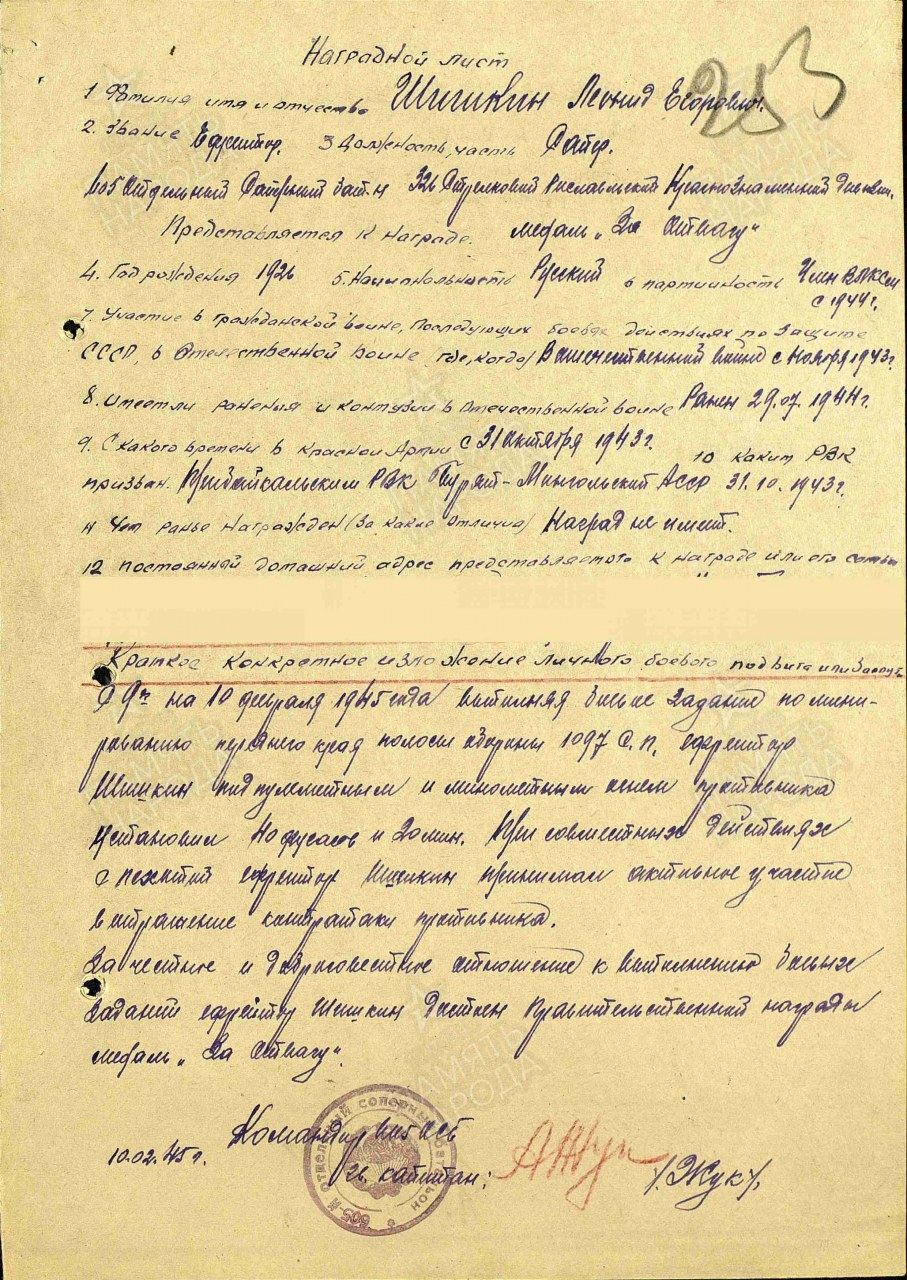 253
Наградной лист
1 Фамилия имя и отчество Шишкин Леонид Егорович.
2. Звание Ефрейтор. 3 Должность, часть Сапер.
605 Отдельный Саперный бат.н 326 Стрелковой Рославльской Краснознаменной дивизии.
Представляется к награде. медаль „За Отвагу"
4. Год рождения 1926 5. Национальность Русский 6 партийность Член ВЛКСМ
с 1944 г.
7. Участие в гражданской войне, последующих боевых действиях по защите
СССР, в Отечественной войне где, когда) В отечественной войне с Ноября 1943 г.
8. Имеет ли ранения и контузии в Отечественной войне Ранен 29.07.1944 г.
9. С какого времени в Красной Армии с 31 октября 1943 г. 10 каким РВК
призван. Прибайкальским РВК Бурят-Монгольской АССР 31.10.1943 г.
11 Чем ранее награжден (за какие отличия) Наград не имеет.
12 постоянный домашний адрес представляемого к награде или его семьи
Краткое конкретное изложение личного боевого подвига или заслуг
С 9го на 10 февраля 1945 года выполняя боевое задание по мини-
рованию переднего края полосы обороны 1097 С.П. ефрейтор
Шишкин под пулеметным и минометным огнем противника
установил 40 фугасов и 20 мин. При совместных действиях
с пехотой ефрейтор Шишкин принимал активное участие
в отражение контратаки противника.
За честное и добросовестное отношение к выполнению боевых
заданий ефрейтор Шишкин достоен Правительственной награды
медаль „За Отвагу".
Командир 605 ОСБ
10.02.45 г. гв. капитан: /.Жук/.
ПАМЯТЬ НАРОДА